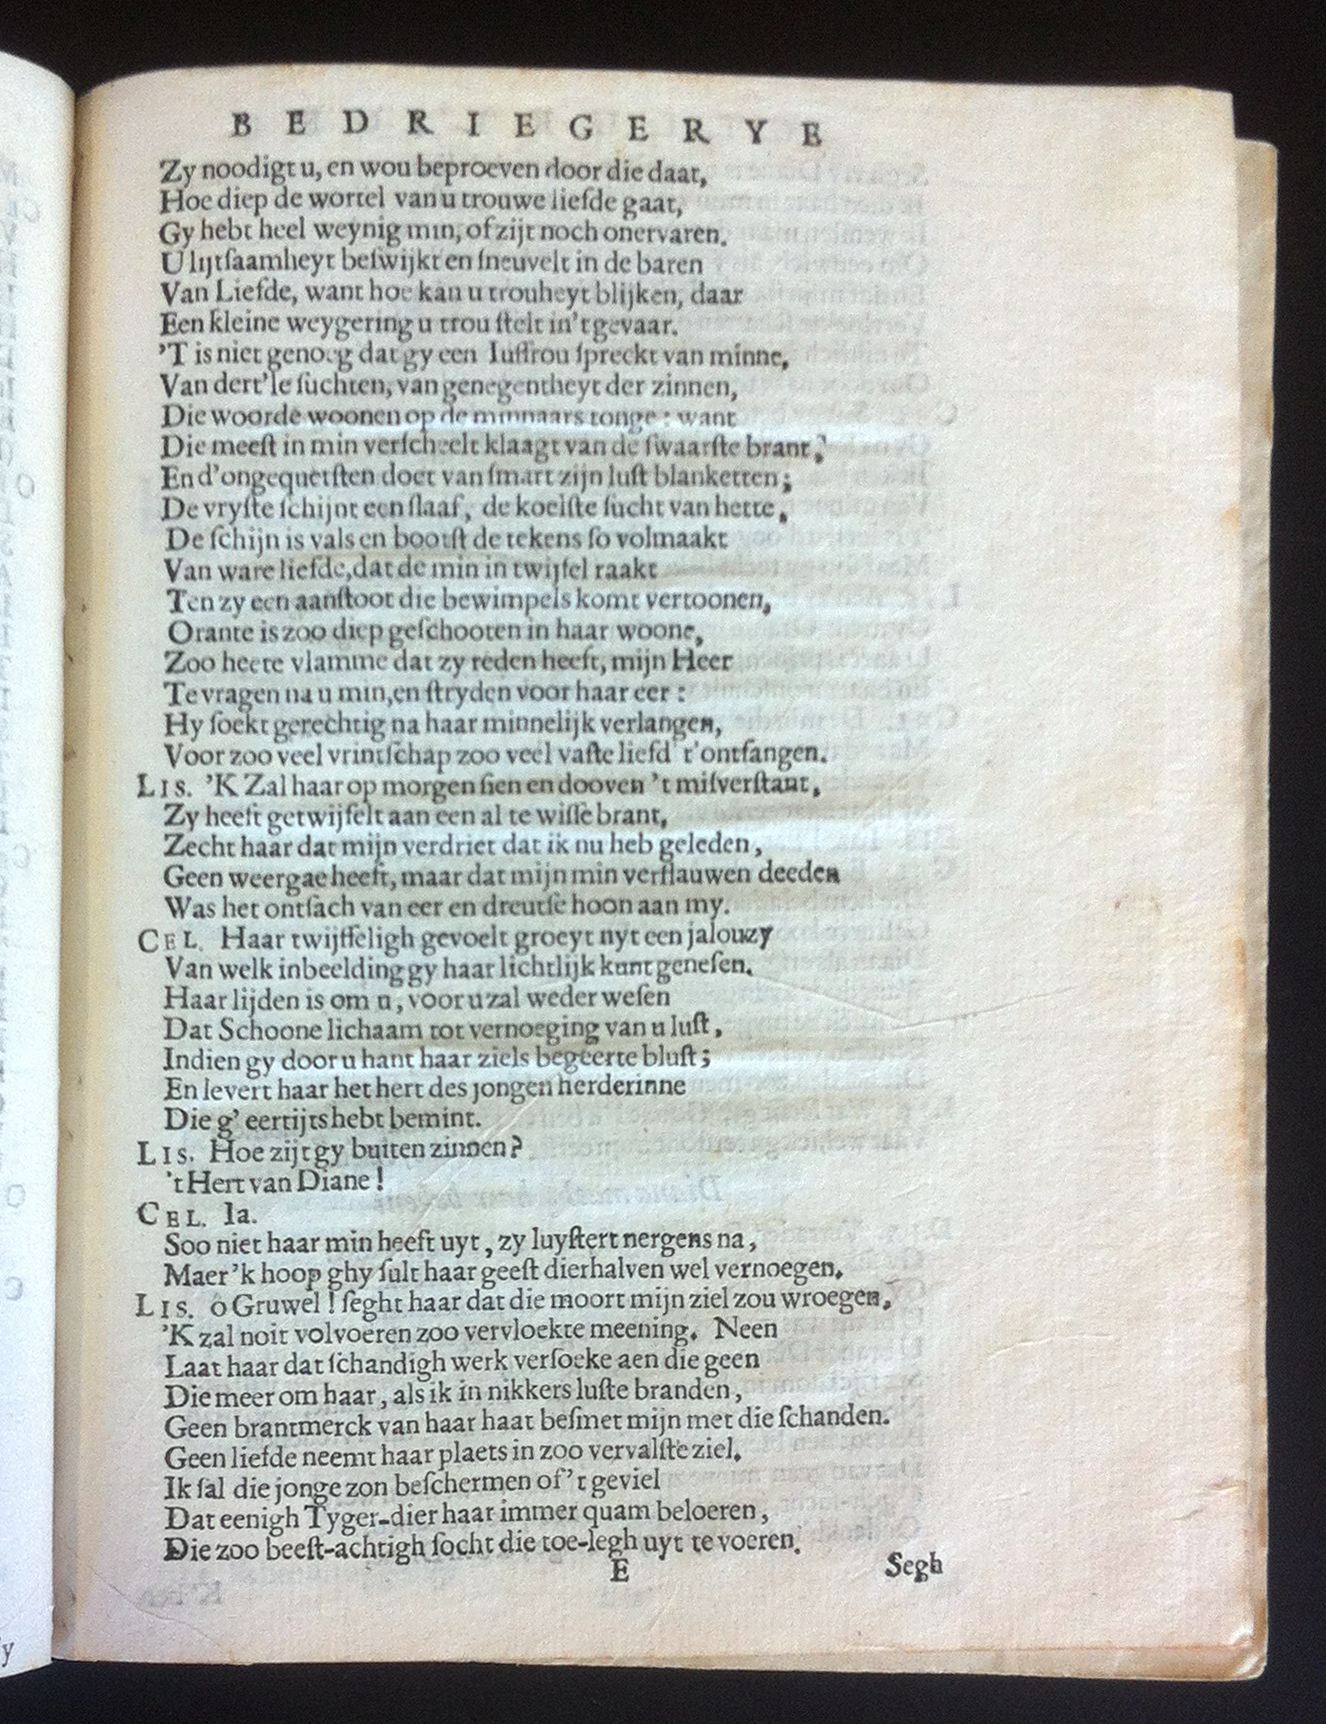 BEDRIEGERYE
Zy noodigt u, en wou beproeven door die daat,
Hoe diep de wortel van u trouwe liefde gaat,
Gy hebt heel weynig min, of zijt noch onervaren.
U lijtſaamheyt beſwijkt en ſneuvelt in de baren
Van Liefde, want hoe kan u trouheyt blijken, daar
Een kleine weygering u trou ſtelt in't gevaar.
'T is niet genoeg dat gy een Iuffrou ſpreekt van minne,
Van dert'le ſuchten, van genegentheyt der zinnen,
Die woorde woonen op de minnaars tonge: want
Die meeſt in min verſcheelt klaagt van de ſwaarſte brant,
En d'ongequetſten doet van ſmart zijn luſt blanketten;
De vryſte ſchijnt een ſlaaf, de koelſte ſucht van hette,
De ſchijn is vals en bootſt de tekens ſo volmaakt
Van ware liefde, dat de min in twijfel raakt
Ten zy een aanſtoot die bewimpels komt vertoonen,
Orante is zoo diep geſchooten in haar woone,
Zoo heete vlamme dat zy reden heeft, mijn Heer
Te vragen na u min, en ſtryden voor haar eer:
Hy ſoekt gerechtig na haar minnelijk verlangen,
Voor zoo veel vrintſchap zoo veel vaſte liefd' t'ontfangen.
LIS. 'K Zal haar op morgen ſien en dooven 't miſverſtant,
Zy heeft getwijfelt aan een al te wiſſe brant,
Zecht haar dat mijn verdriet dat ik nu heb geleden,
Geen weergae heeft, maar dat mijn min verflauwen deeden
Was het ontſach van eer en dreutſe hoon aan my.
CEL. Haar twijffeligh gevoelt groeyt uyt een jalouzy
Van welk inbeelding gy haar lichtlijk kunt geneſen.
Haar lijden is om u, voor u zal weder weſen
Dat Schoone lichaam tot vernoeging van u luſt,
Indien gy door u hant haar ziels begeerte bluſt;
En levert haar het hert des jongen herderinne
Die g' eertijts hebt bemint.
LIS. Hoe zijt gy buiten zinnen?
't Hert van Diane!
CEL. Ia.
Soo niet haar min heeft uyt, zy luyſtert nergens na,
Maer 'k hoop ghy ſult haar geeſt dierhalven wel vernoegen.
LIS. ô Gruwel! ſeght haar dat die moort mijn ziel zou wroegen,
'K zal noit volvoeren zoo vervloekte meening. Neen
Laat haar dat ſchandigh werk verſoeke aen die geen
Die meer om haar, als ik in nikkers luſte branden,
Geen brantmerck van haar haat beſmet mijn met die ſchanden.
Geen liefde neemt haar plaets in zoo vervalſte ziel.
Ik ſal die jonge zon beſchermen of 't geviel
Dat eenigh Tyger-dier haar immer quam beloeren,
Die zoo beeſt-achtigh ſocht die toe-legh uyt te voeren.
E
Segh